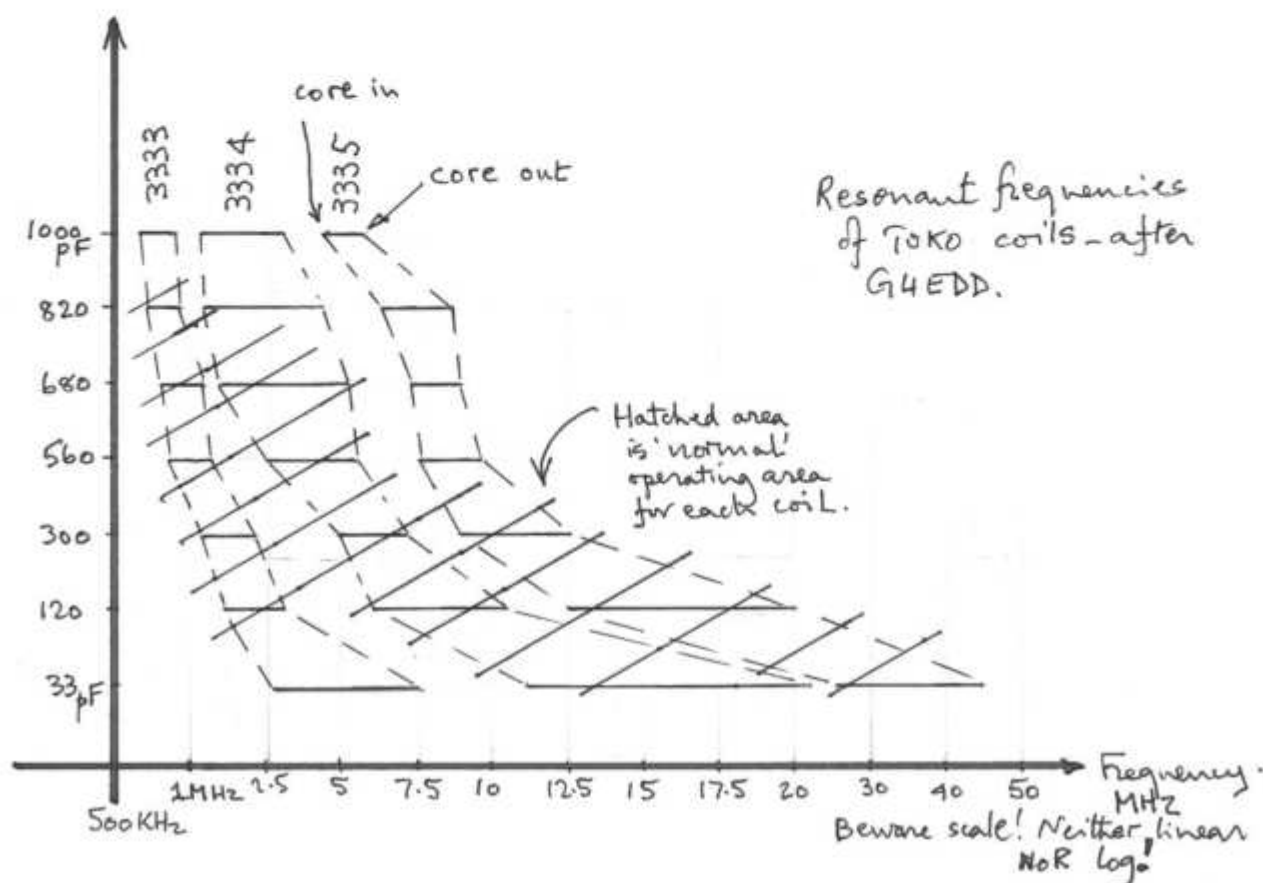 core in
3333
3334
3335
core out
Resonant frequencies
of TOKO coils - after
G4EDD.
1000
pF
820
680
560
300
120
33
pF
Hatched area
is 'normal'
operating area
for each coil.
500KHz
1MHz
2.5
5
7.5
10
12.5
15
17.5
20
30
40
50
Frequency.
MHz
Beware scale! Neither linear
NOR log!